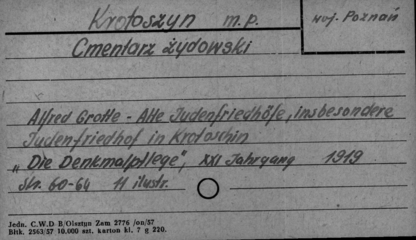 Krotoszyn m.p.
woj. Poznań
Cmentarz żydowski
Alfred Grotte - Alte Judenfriedhöfe, insbesondere
Judenfriedhof in Krotoschin
„Die Denkmalpflege", XXI Jahrgang 1919
str. 60-64 11 ilustr.
Jedn. C.W.D B/Olsztyn Zam 2776 /on/57
Błtk. 2563/57 10.000 szt. karton kl. 7 g 220.